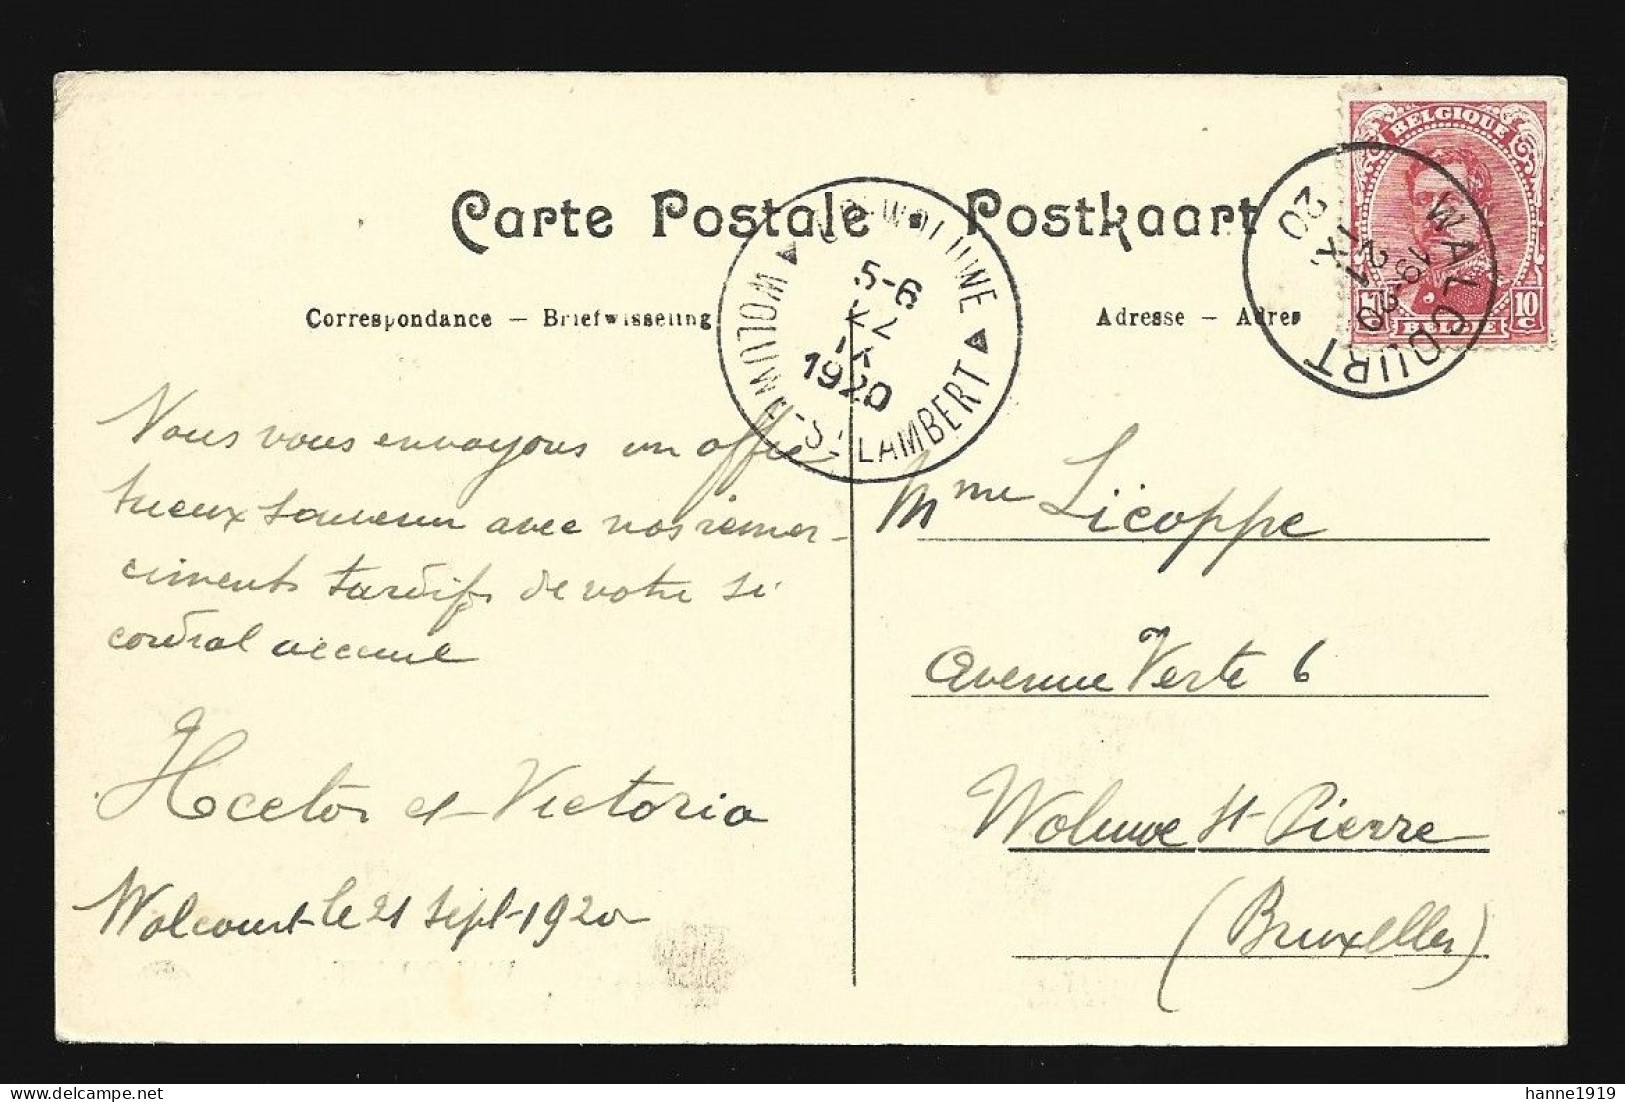 Carte Postale - Postkaart
Correspondance — Briefwisseling
Adresse — Adres
BELGIQUE
10 c
BELGIË
WALCOURT
18-19
21
IX
20
WOLUWE-ST-LAMBERT
5-6
22
IX
1920
Nous vous envoyons un affec
tueux souvenir avec nos remer-
ciments tardifs de votre si
cordial accueil
Hector et Victoria
Walcourt le 21 Sept 1920
Mme Licoppe
Avenue Verte 6
Woluwe St Pierre
(Bruxelles)
hanne1919